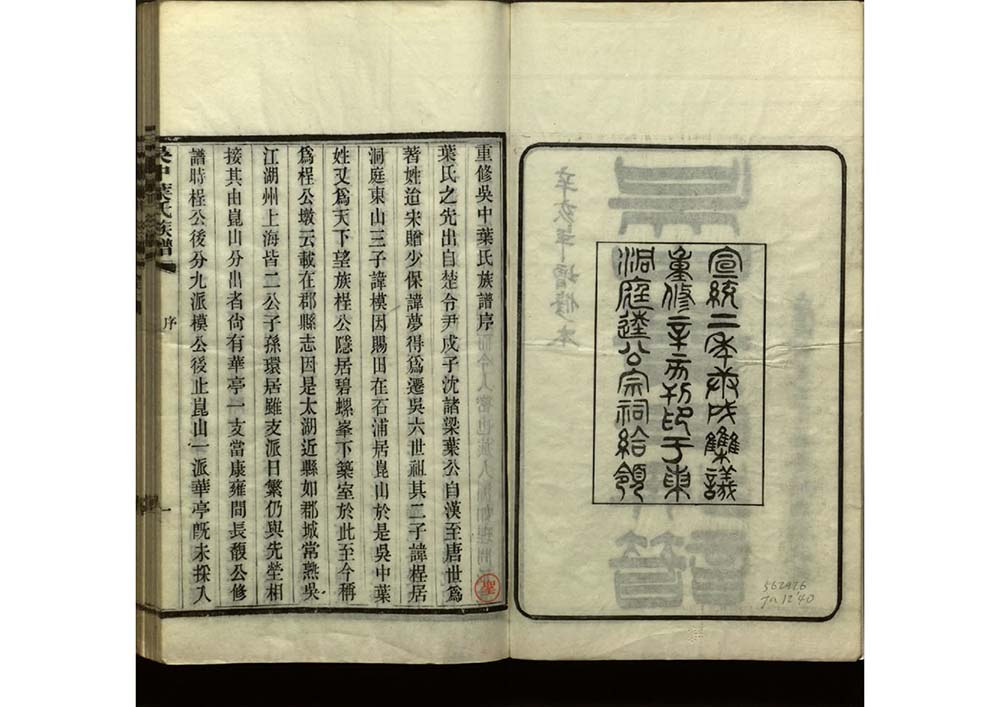 宣統二年庚戌集議
重修辛亥刊印于東
洞庭逵公宗祠給領
562976
Jn 12'40
辛亥年增修本
重修吳中葉氏族譜序
葉氏之先出自楚令尹戌子沈諸梁葉公自漢至唐世爲
著姓迨宋贈少保諱夢得爲遷吳六世祖其二子諱桯居
洞庭東山三子諱模因賜田在石浦居崑山於是吳中葉
姓又爲天下望族桯公隱居碧螺峯下築室於此至今稱
爲桯公墩云載在郡縣志因是太湖近縣如郡城常熟吳
江湖州上海皆二公子孫環居雖支派日繁仍與先塋相
接其由崑山分出者尙有華亭一支當康雍間長馥公修
譜時桯公後分九派模公後止崑山一派華亭旣未採入
聖
吳中葉氏族譜
序
一